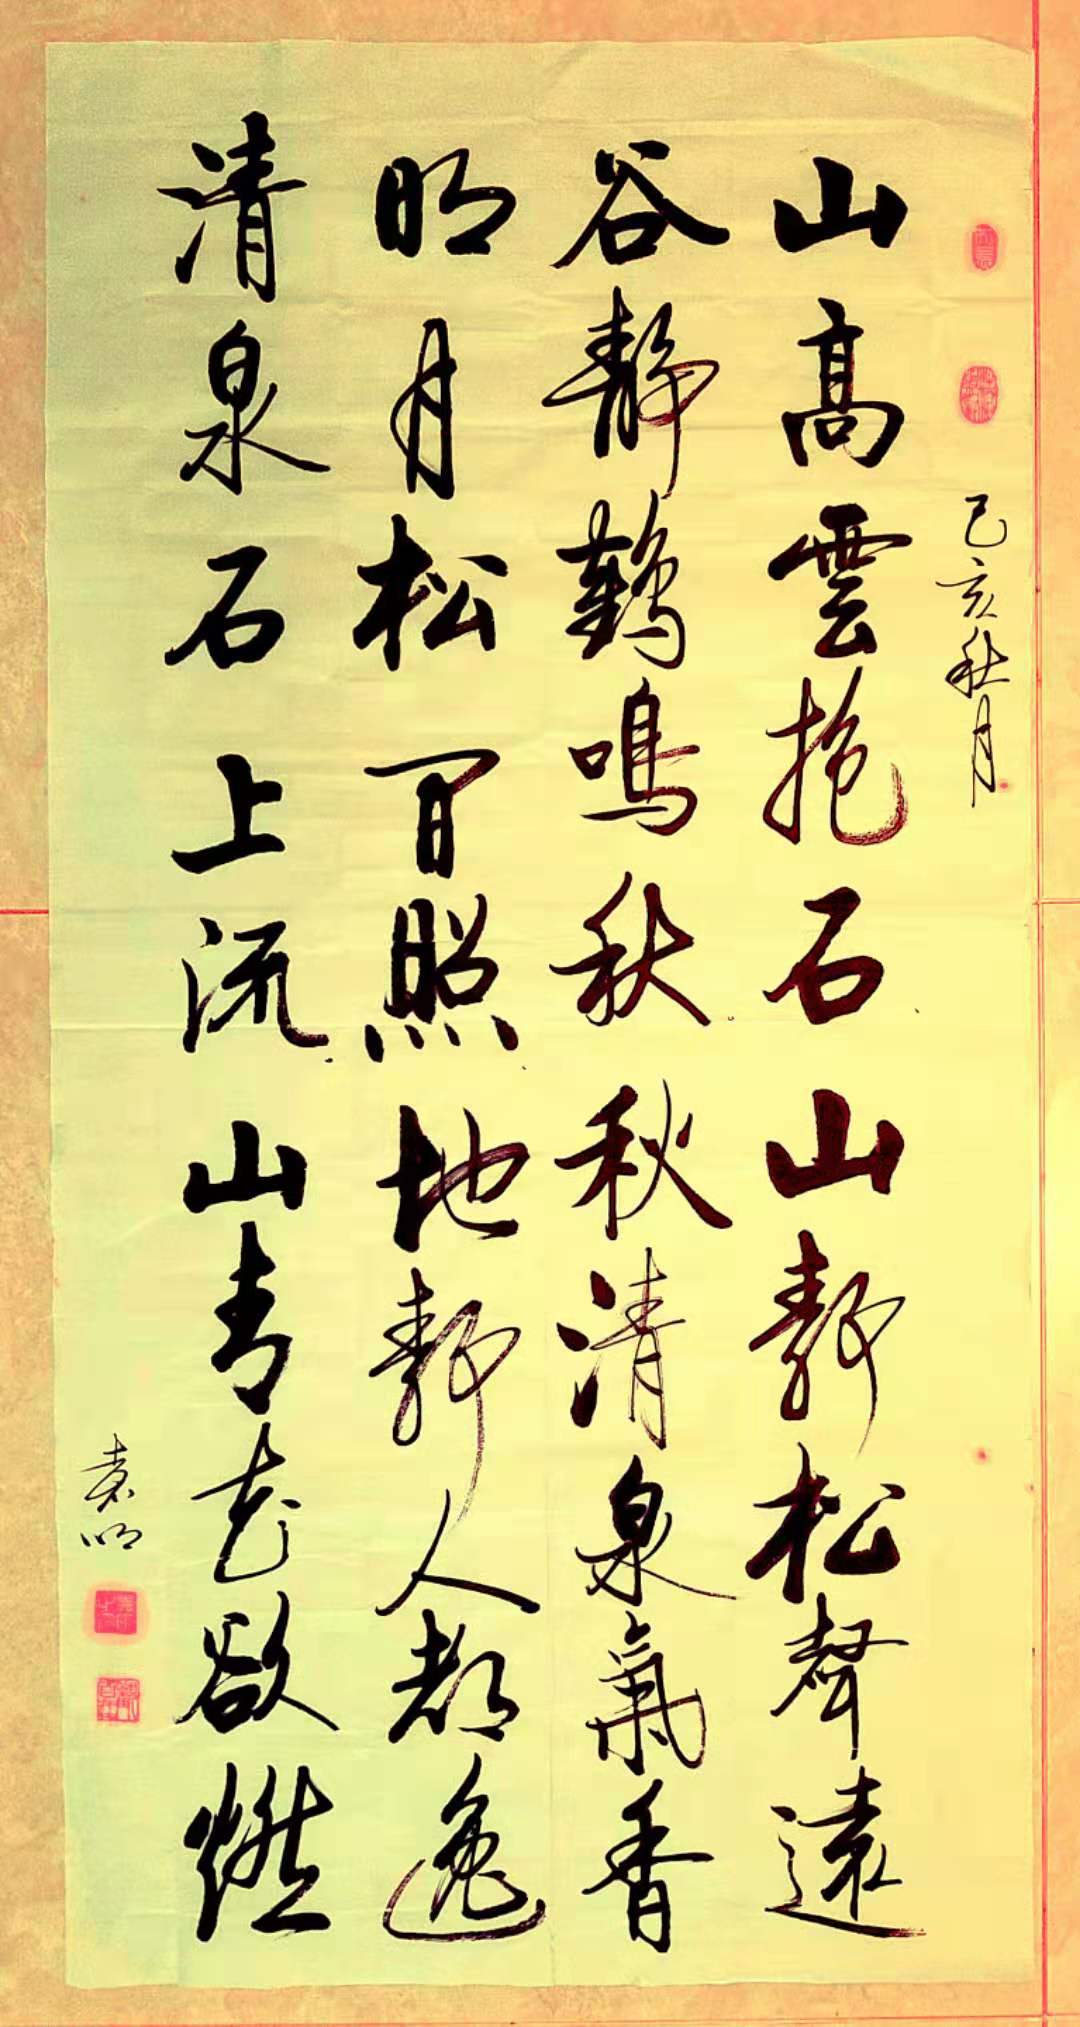 己亥秋月
山高雲抱石山靜松聲遠
谷靜鶴鳴秋秋清泉氣香
明月松間照地靜人都逸
清泉石上流山青花欲燃
袁明